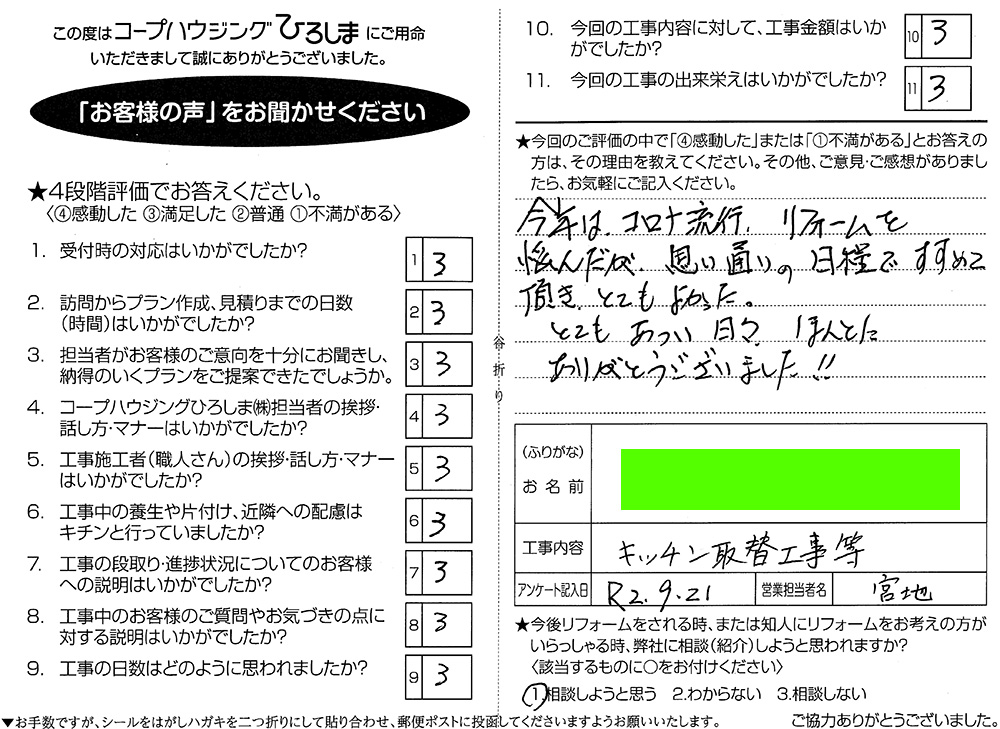 この度はコープハウジングひろしまにご用命
いただきまして誠にありがとうございました。
「お客様の声」をお聞かせください
★4段階評価でお答えください。
〈④感動した ③満足した ②普通 ①不満がある〉
1. 受付時の対応はいかがでしたか? 1 3
2. 訪問からプラン作成、見積りまでの日数
（時間）はいかがでしたか? 2 3
3. 担当者がお客様のご意向を十分にお聞きし、
納得のいくプランをご提案できたでしょうか。 3 3
4. コープハウジングひろしま㈱担当者の挨拶・
話し方・マナーはいかがでしたか? 4 3
5. 工事施工者（職人さん）の挨拶・話し方・マナー
はいかがでしたか? 5 3
6. 工事中の養生や片付け、近隣への配慮は
キチンと行っていましたか? 6 3
7. 工事の段取り・進捗状況についてのお客様
への説明はいかがでしたか? 7 3
8. 工事中のお客様のご質問やお気づきの点に
対する説明はいかがでしたか? 8 3
9. 工事の日数はどのように思われましたか? 9 3
▼お手数ですが、シールをはがしハガキを二つ折りにして貼り合わせ、郵便ポストに投函してくださいますようお願いいたします。
谷折り
10. 今回の工事内容に対して、工事金額はいか
がでしたか? 10 3
11. 今回の工事の出来栄えはいかがでしたか? 11 3
★今回のご評価の中で「④感動した」または「①不満がある」とお答えの
方は、その理由を教えてください。その他、ご意見・ご感想がありまし
たら、お気軽にご記入ください。
今年は、コロナ流行、リフォームを
悩んだが、思い通りの日程ですすめて
頂き、とてもよかった。
とてもあつい日々、ほんとに
ありがとうございました!!
（ふりがな）
お名前
工事内容 キッチン取替工事等
アンケート記入日 R2.9.21 営業担当者名 宮地
★今後リフォームをされる時、または知人にリフォームをお考えの方が
いらっしゃる時、弊社に相談（紹介）しようと思われますか?
〈該当するものに○をお付けください〉
1.相談しようと思う 2.わからない 3.相談しない
ご協力ありがとうございました。